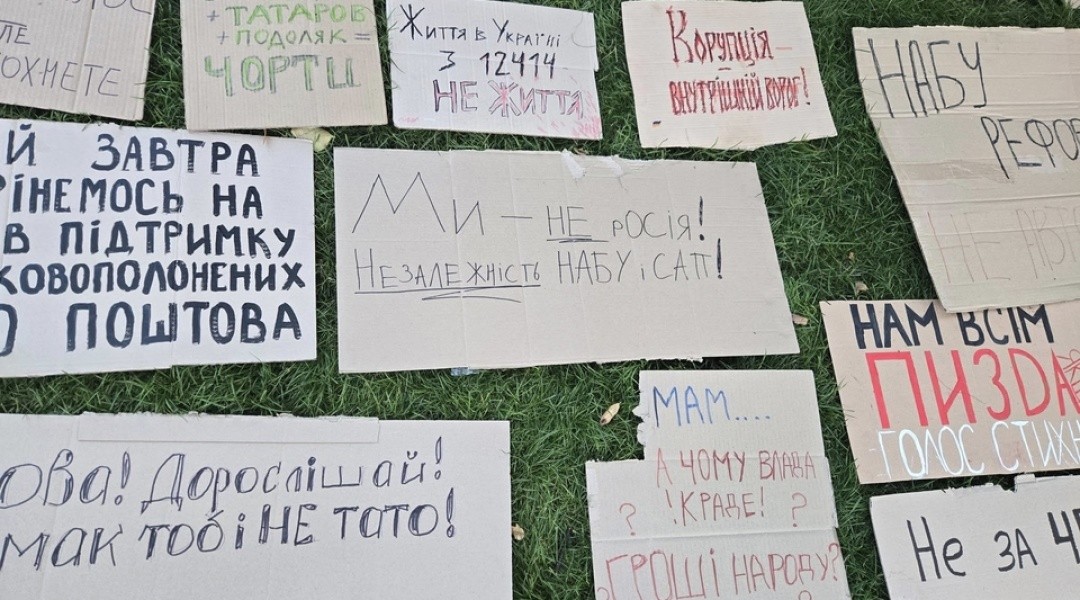 ЛЕ
ОХНЕТЕ
+ ТАТАРОВ
+ ПОДОЛЯК =
ЧОРТЦ
Життя в Україні
З 12414
НЕ ЖИТТЯ
Корупція –
внутрішній ворог!
НАБУ
РЕФОР
НЕ АВТО
Й ЗАВТРА
РІНЕМОСЬ НА
В ПІДТРИМКУ
КОВОПОЛОНЕНИХ
О ПОШТОВА
Ми – НЕ росія!
Незалежність НАБУ і САП!
НАМ ВСІМ
ПИЗДА
-ГОЛОС СТИХН
ова! Дорослішай!
мак тобі НЕ тато!
МАМ....
А ЧОМУ ВЛАДА
? КРАДЕ! ?
ГРОШІ НАРОДУ?
Не за